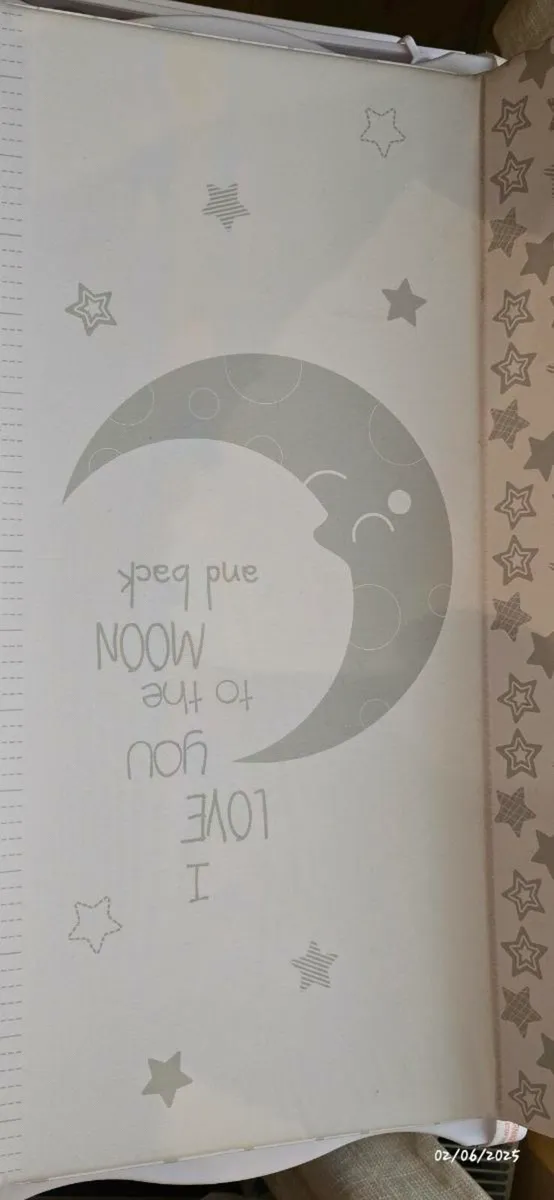 I
LOVE
YOU
to the
MOON
and back
02/06/2025